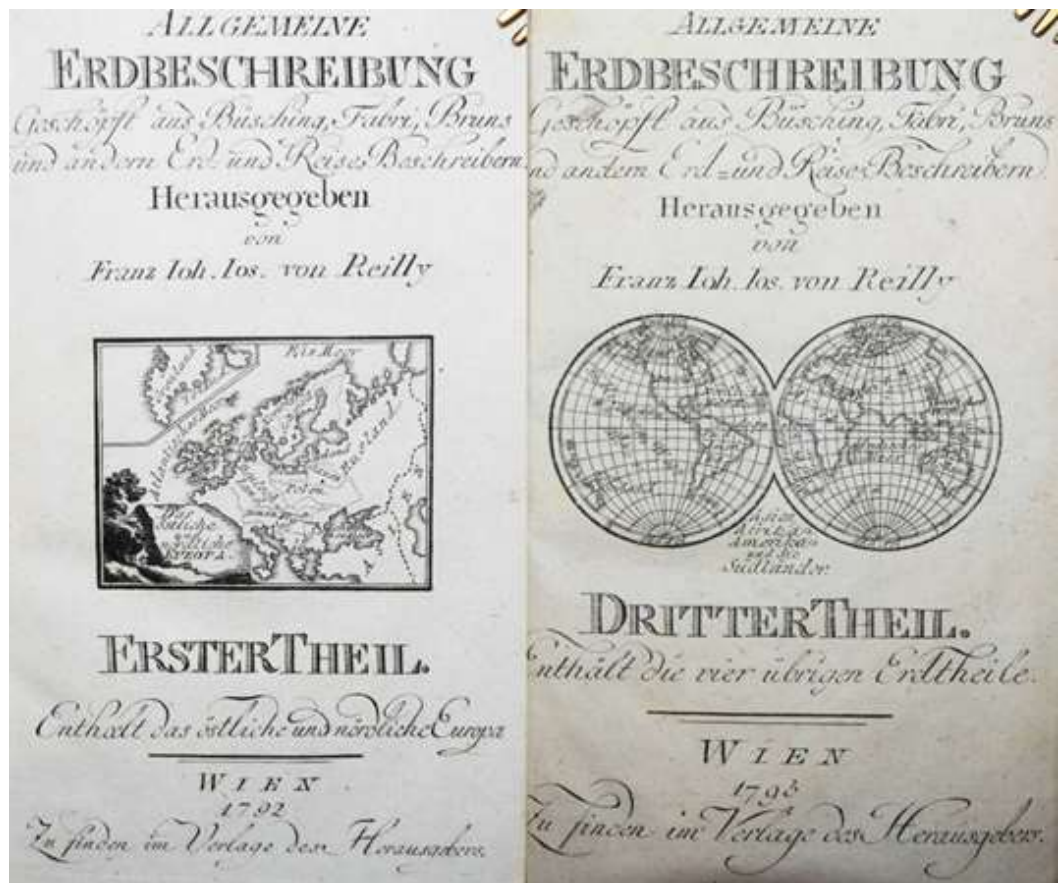 ALLGEMEINE
ERDBESCHREIBUNG
Geschöpft aus Büsching, Fabri, Bruns
und andern Erd- und Reise-Beschreibern
Herausgegeben
von
Franz Ioh. Ios. von Reilly
Eis Meer
Polen
Rusland
EUROPA
ERSTER THEIL.
Enthælt das östliche und nördliche Europa
WIEN
1792
Zu finden im Verlage des Herausgebers.
ALLGEMEINE
ERDBESCHREIBUNG
Geschöpft aus Büsching, Fabri, Bruns
nd andern Erd=und Reise=Beschreibern
Herausgegeben
von
Franz Ioh. Ios. von Reilly
Asien
Afrika
Amerika
und die
Südländer.
DRITTER THEIL.
Enthält die vier übrigen Erdtheile.
WIEN
Zu finden im Verlage des Herausgebers.